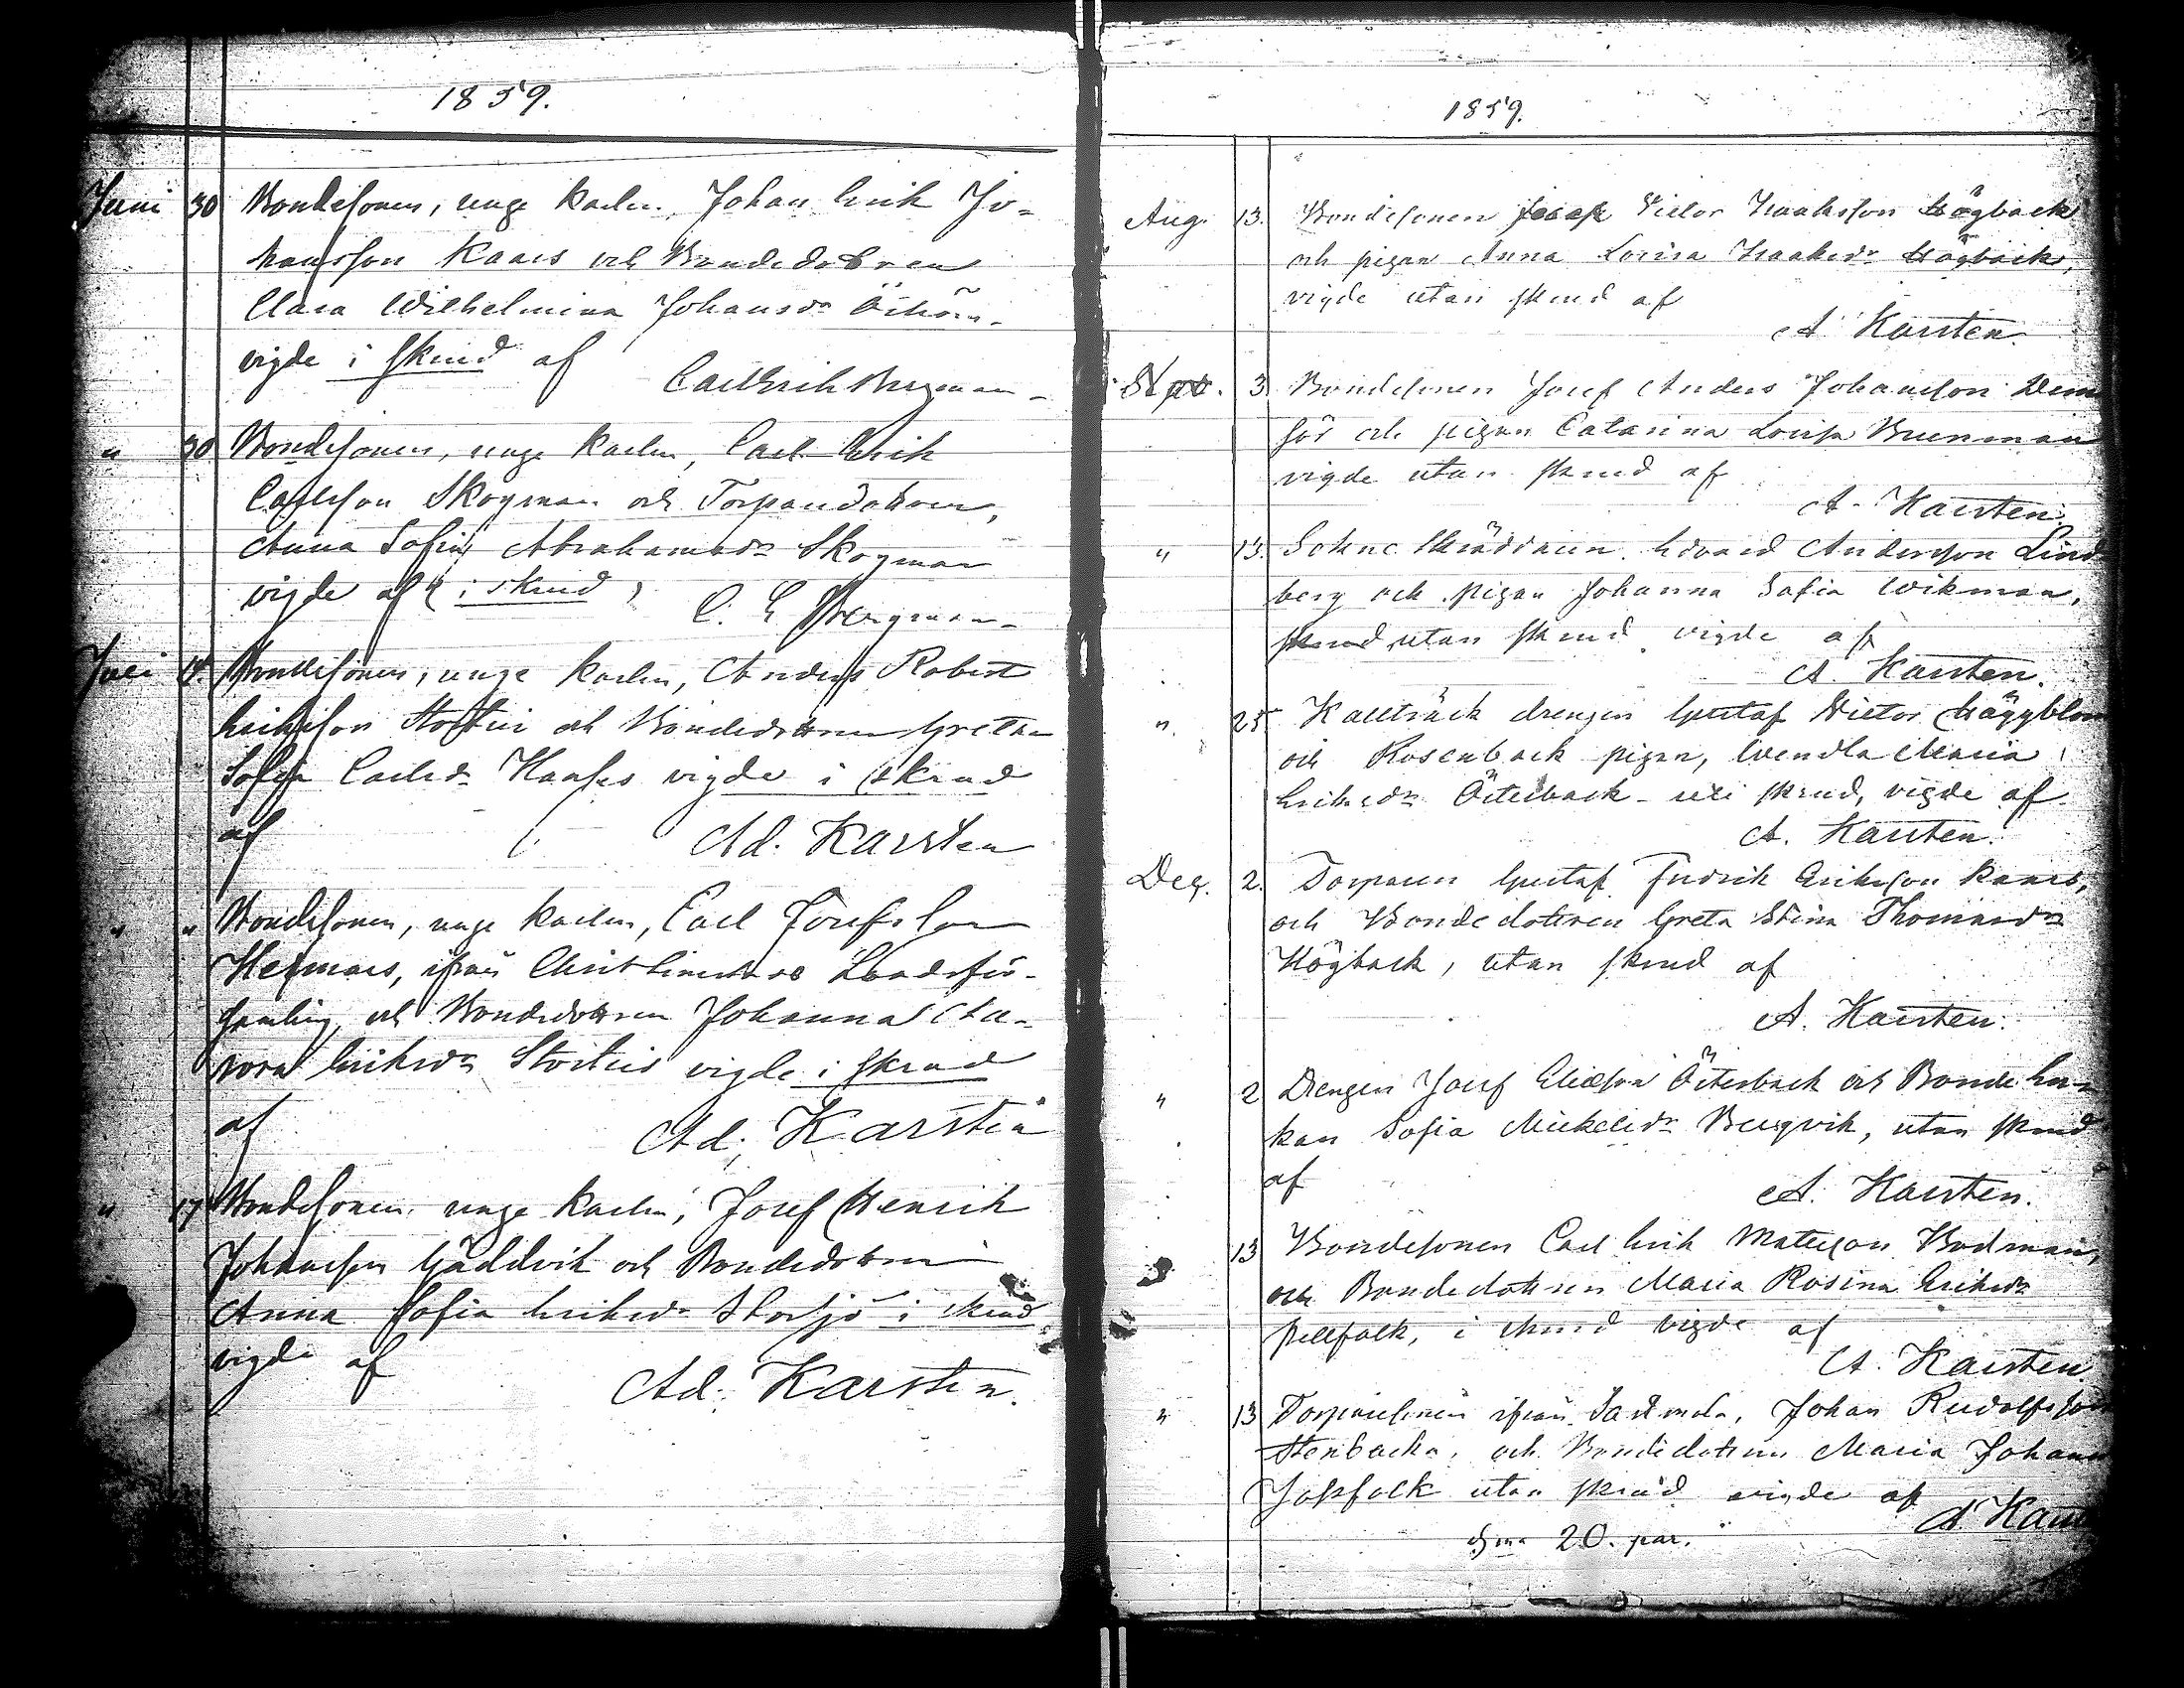 1859.
Juni 30 Bondesonen, unge karlen, Johan Erik Jo-
hansson Kaars och Bondedottren
Clara Wilhelmina Johansdr
vigde i skrud af Carl Erik Bergman
" 30 Bondesonen, unge karlen, Carl Erik
Carlsson Skogman och Torparedottren,
Anna Sofia Abrahamsdr Skogman
vigde af (i skrud) C. E. Bergman
Juli Bondesonen, unge karlen, Anders Robert
Eriksson och Bondedottren Greta
Sofia Carlsdr vigde i skrud
af Ad. Karsten
" " Bondesonen, unge karlen, Carl Josefsson
ifrån Christinestads Landsför-
samling, och Bondedottren Johanna Au-
rora Eriksdr vigde i skrud
af Ad. Karsten
" 17 Bondesonen, unge karlen, Josef Henrik
Johansson Gäddvik och Bondedottren
Anna Sofia Eriksdr i skrud
vigde af Ad. Karsten.
1859.
Aug. 13. Bondesonen Victor Isaaksson Högback
och pigan Anna Lovisa Isaaksdr Högback,
vigde utan skrud af
A. Karsten.
Sept. 3 Bondesonen Josef Anders Johansson
och pigan Catarina Lovisa
vigde utan skrud af
A. Karsten.
" 13. Edvard Andersson Lind
berg och pigan Johanna Sofia Wikman,
skrud utan skrud vigde af
A. Karsten.
" 25 Kallträsk drengen Gustaf Victor Häggblom
och Rosenback pigan, Wendla Maria
Eriksdr Österback - skrud, vigde af
A. Karsten.
Dec. 2. Torparen Gustaf Fredrik Eriksson Kaars,
och Bonde dottren Greta Stina Thomasdr
Högback, utan skrud af
A. Karsten.
" 2 Drengen Josef Eliasson Österback och Bonde
Sofia Mickelsdr Bergvik, utan skrud
af
A. Karsten.
13 Bondesonen Carl Erik Matsson Bodman,
och Bondedottren Maria Rosina Eriksdr
Pellfolk, i skrud vigde af
A. Karsten.
" 13 ifrån Sastmola, Johan Rudolfsson
Stenbacka, och Bondedottren Maria Johan
Josfolk utan skrud vigde af
A. Karst
20. par.